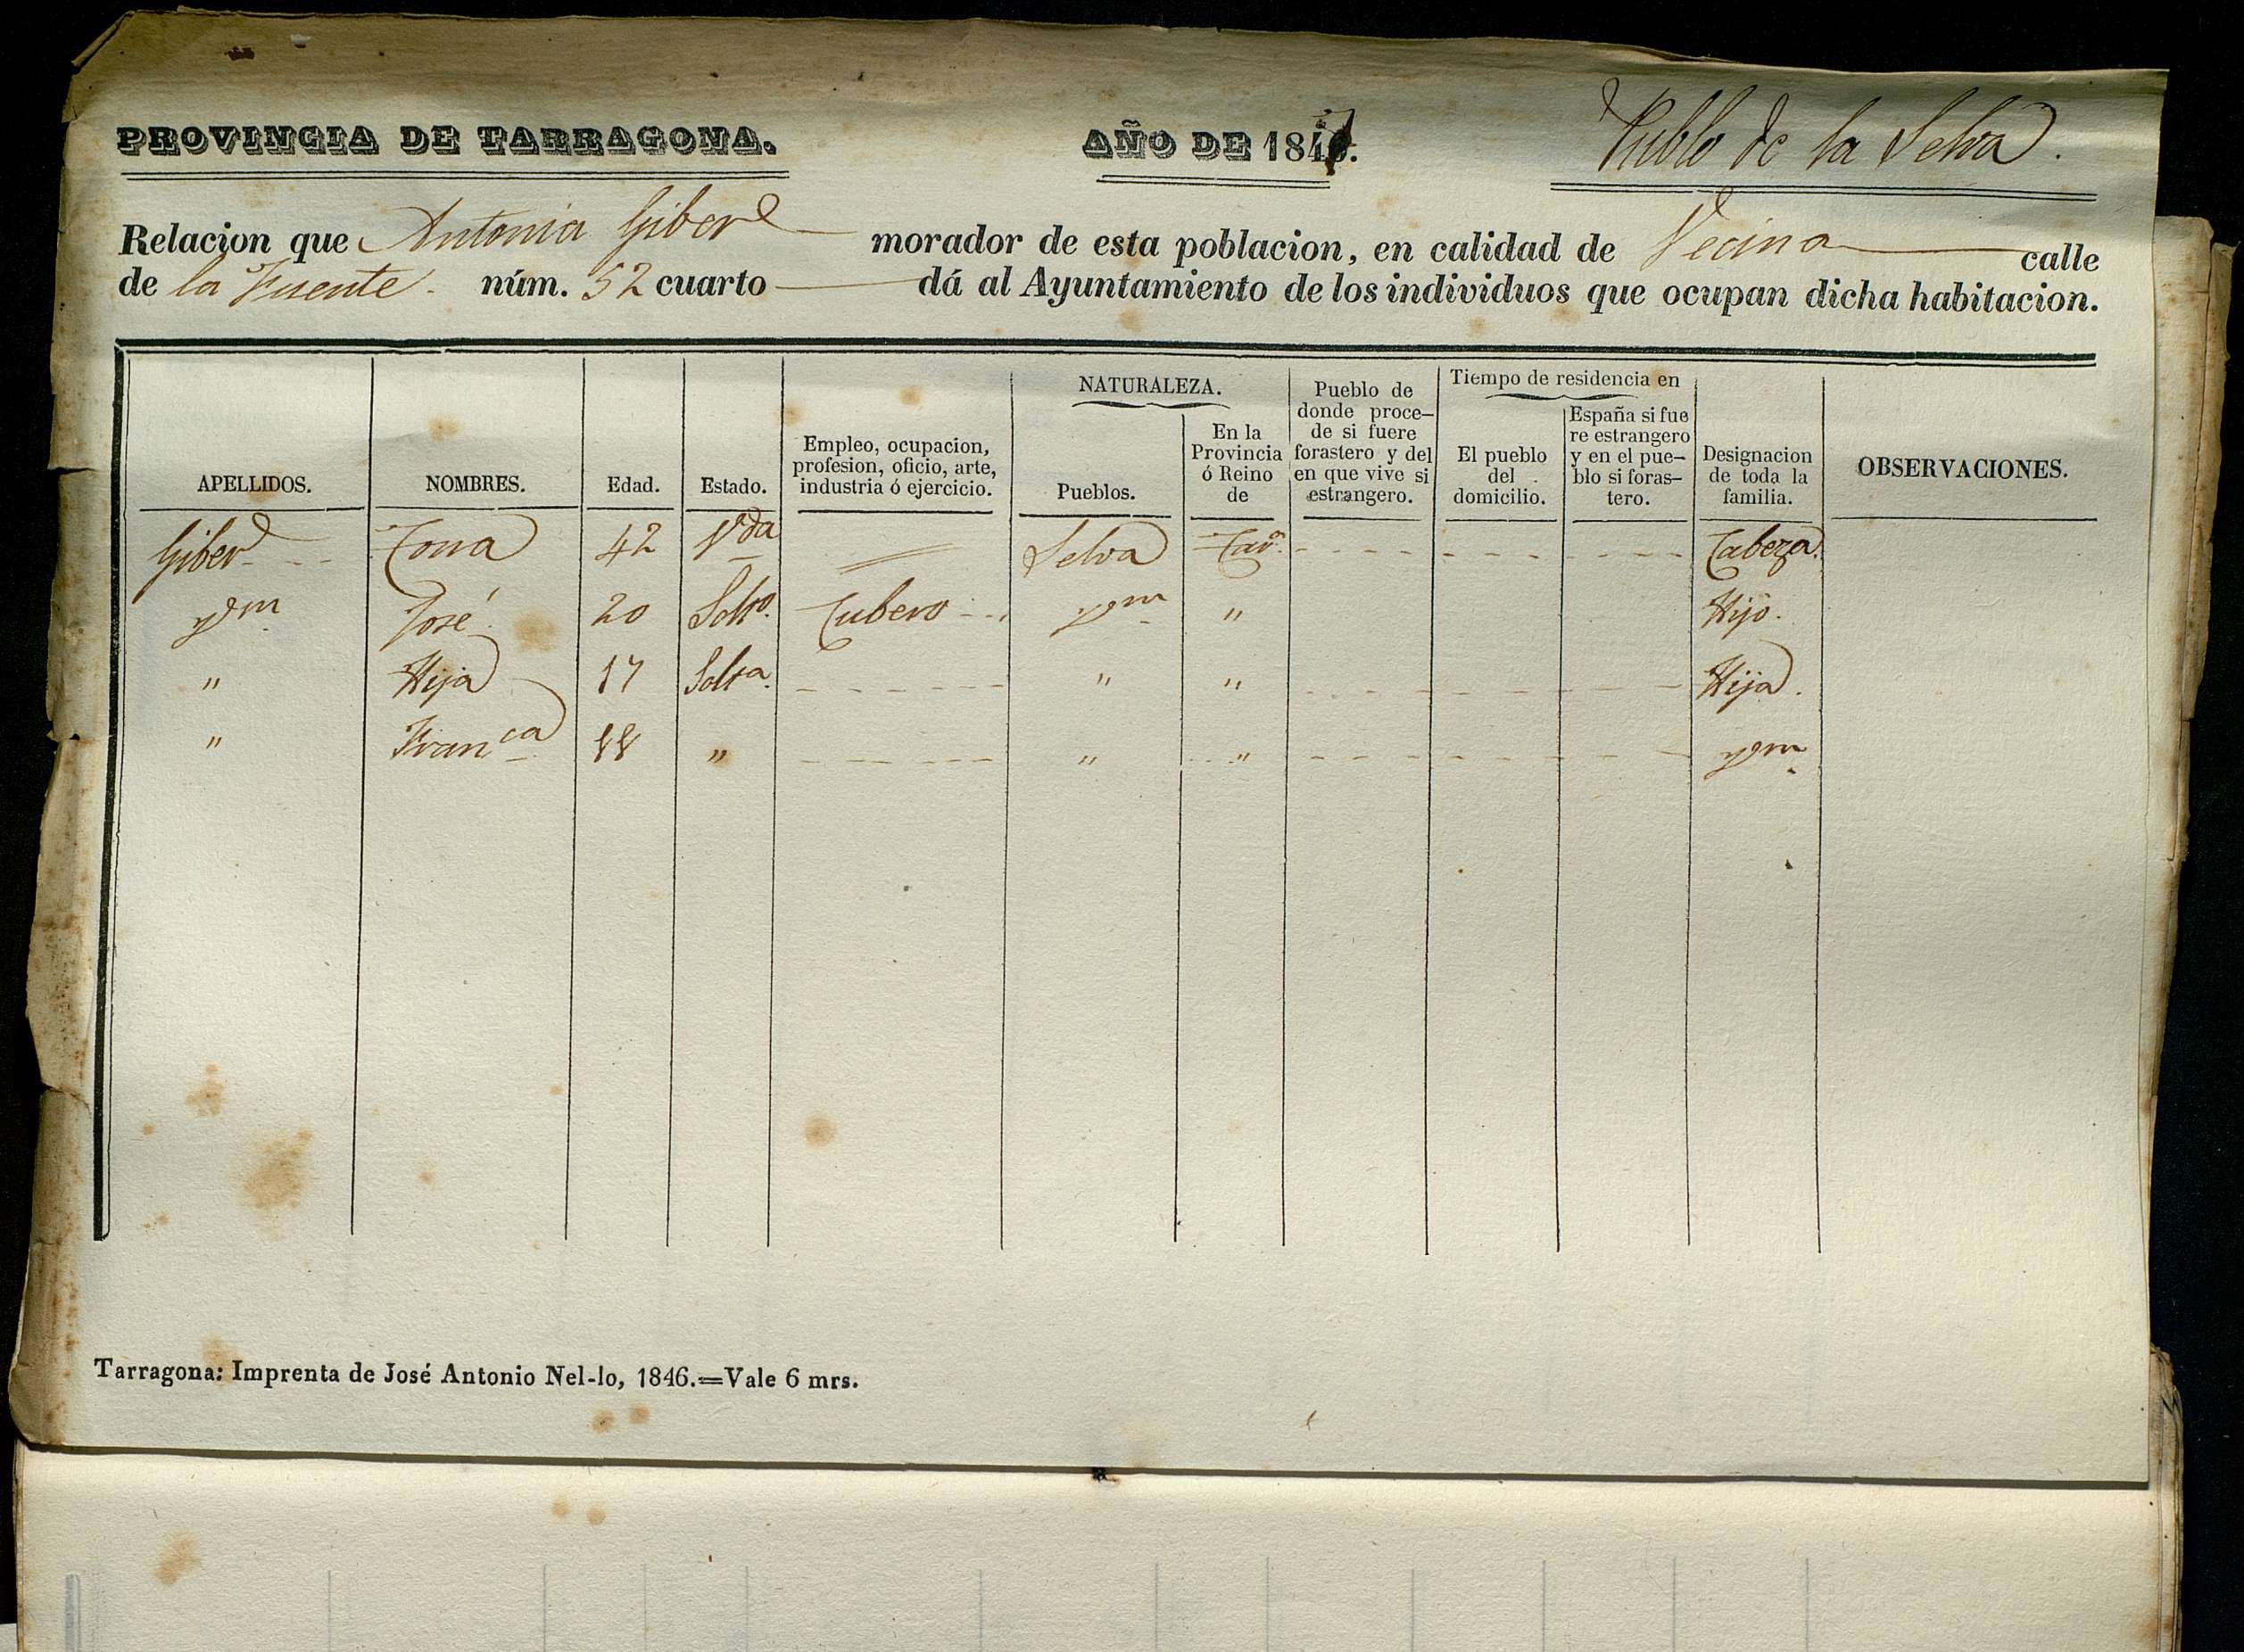 PROVINCIA DE TARRAGONA.
AÑO DE 1847.
Pueblo de la Selva.
Relacion que Antonia Gibert morador de esta poblacion, en calidad de Vecina calle
de la Fuente. núm. 52 cuarto dá al Ayuntamiento de los individuos que ocupan dicha habitacion.
APELLIDOS. NOMBRES. Edad. Estado. Empleo, ocupacion, profesion, oficio, arte, industria ó ejercicio. NATURALEZA. Pueblos. En la Provincia ó Reino de Pueblo de donde proce-de si fuere forastero y del en que vive si estrangero. Tiempo de residencia en El pueblo del domicilio. España si fue re estrangero y en el pue-blo si foras-tero. Designacion de toda la familia. OBSERVACIONES.
Gibert 42 Vda Selva Tarª Cabeza.
ygm José 20 Solto. Cubero ygm " Hijo.
" Hija 17 Solta. " " Hija.
" Franca " " " ygm
Tarragona: Imprenta de José Antonio Nel-lo, 1846.=Vale 6 mrs.